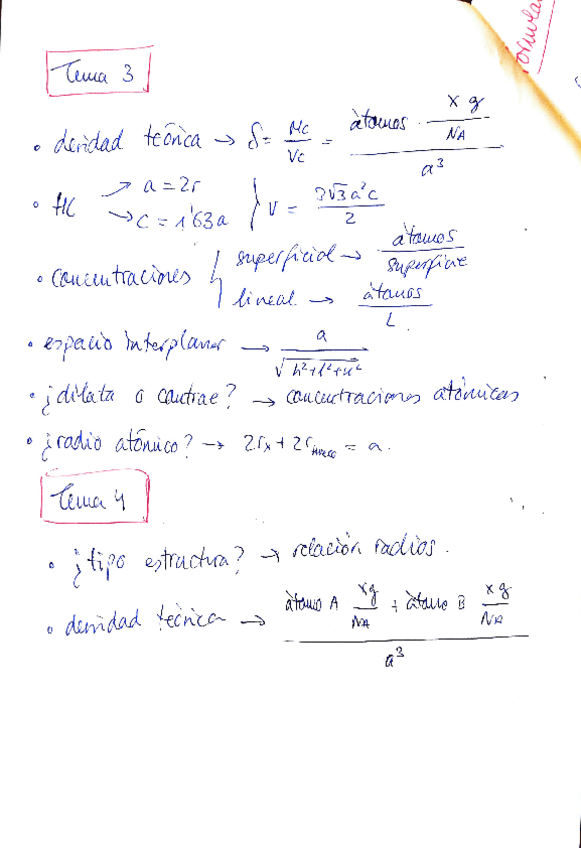 Formula
Tema 3
• densidad teórica → δ = Mc/Vc = (átomos · x g/NA)/a³
• HC → a = 2r → c = 1'63a } V = 3√3 a²c/2
• concentraciones { superficial → átomos/superficie
lineal → átomos/L
• espacio interplanar → a/√(h²+l²+k²)
• ¿dilata o contrae? → concentraciones atómicas
• ¿radio atómico? → 2rx + 2rhueco = a.
Tema 4
• ¿tipo estructura? → relación radios.
• densidad teórica → (átomo A xg/NA + átomo B xg/NA)/a³